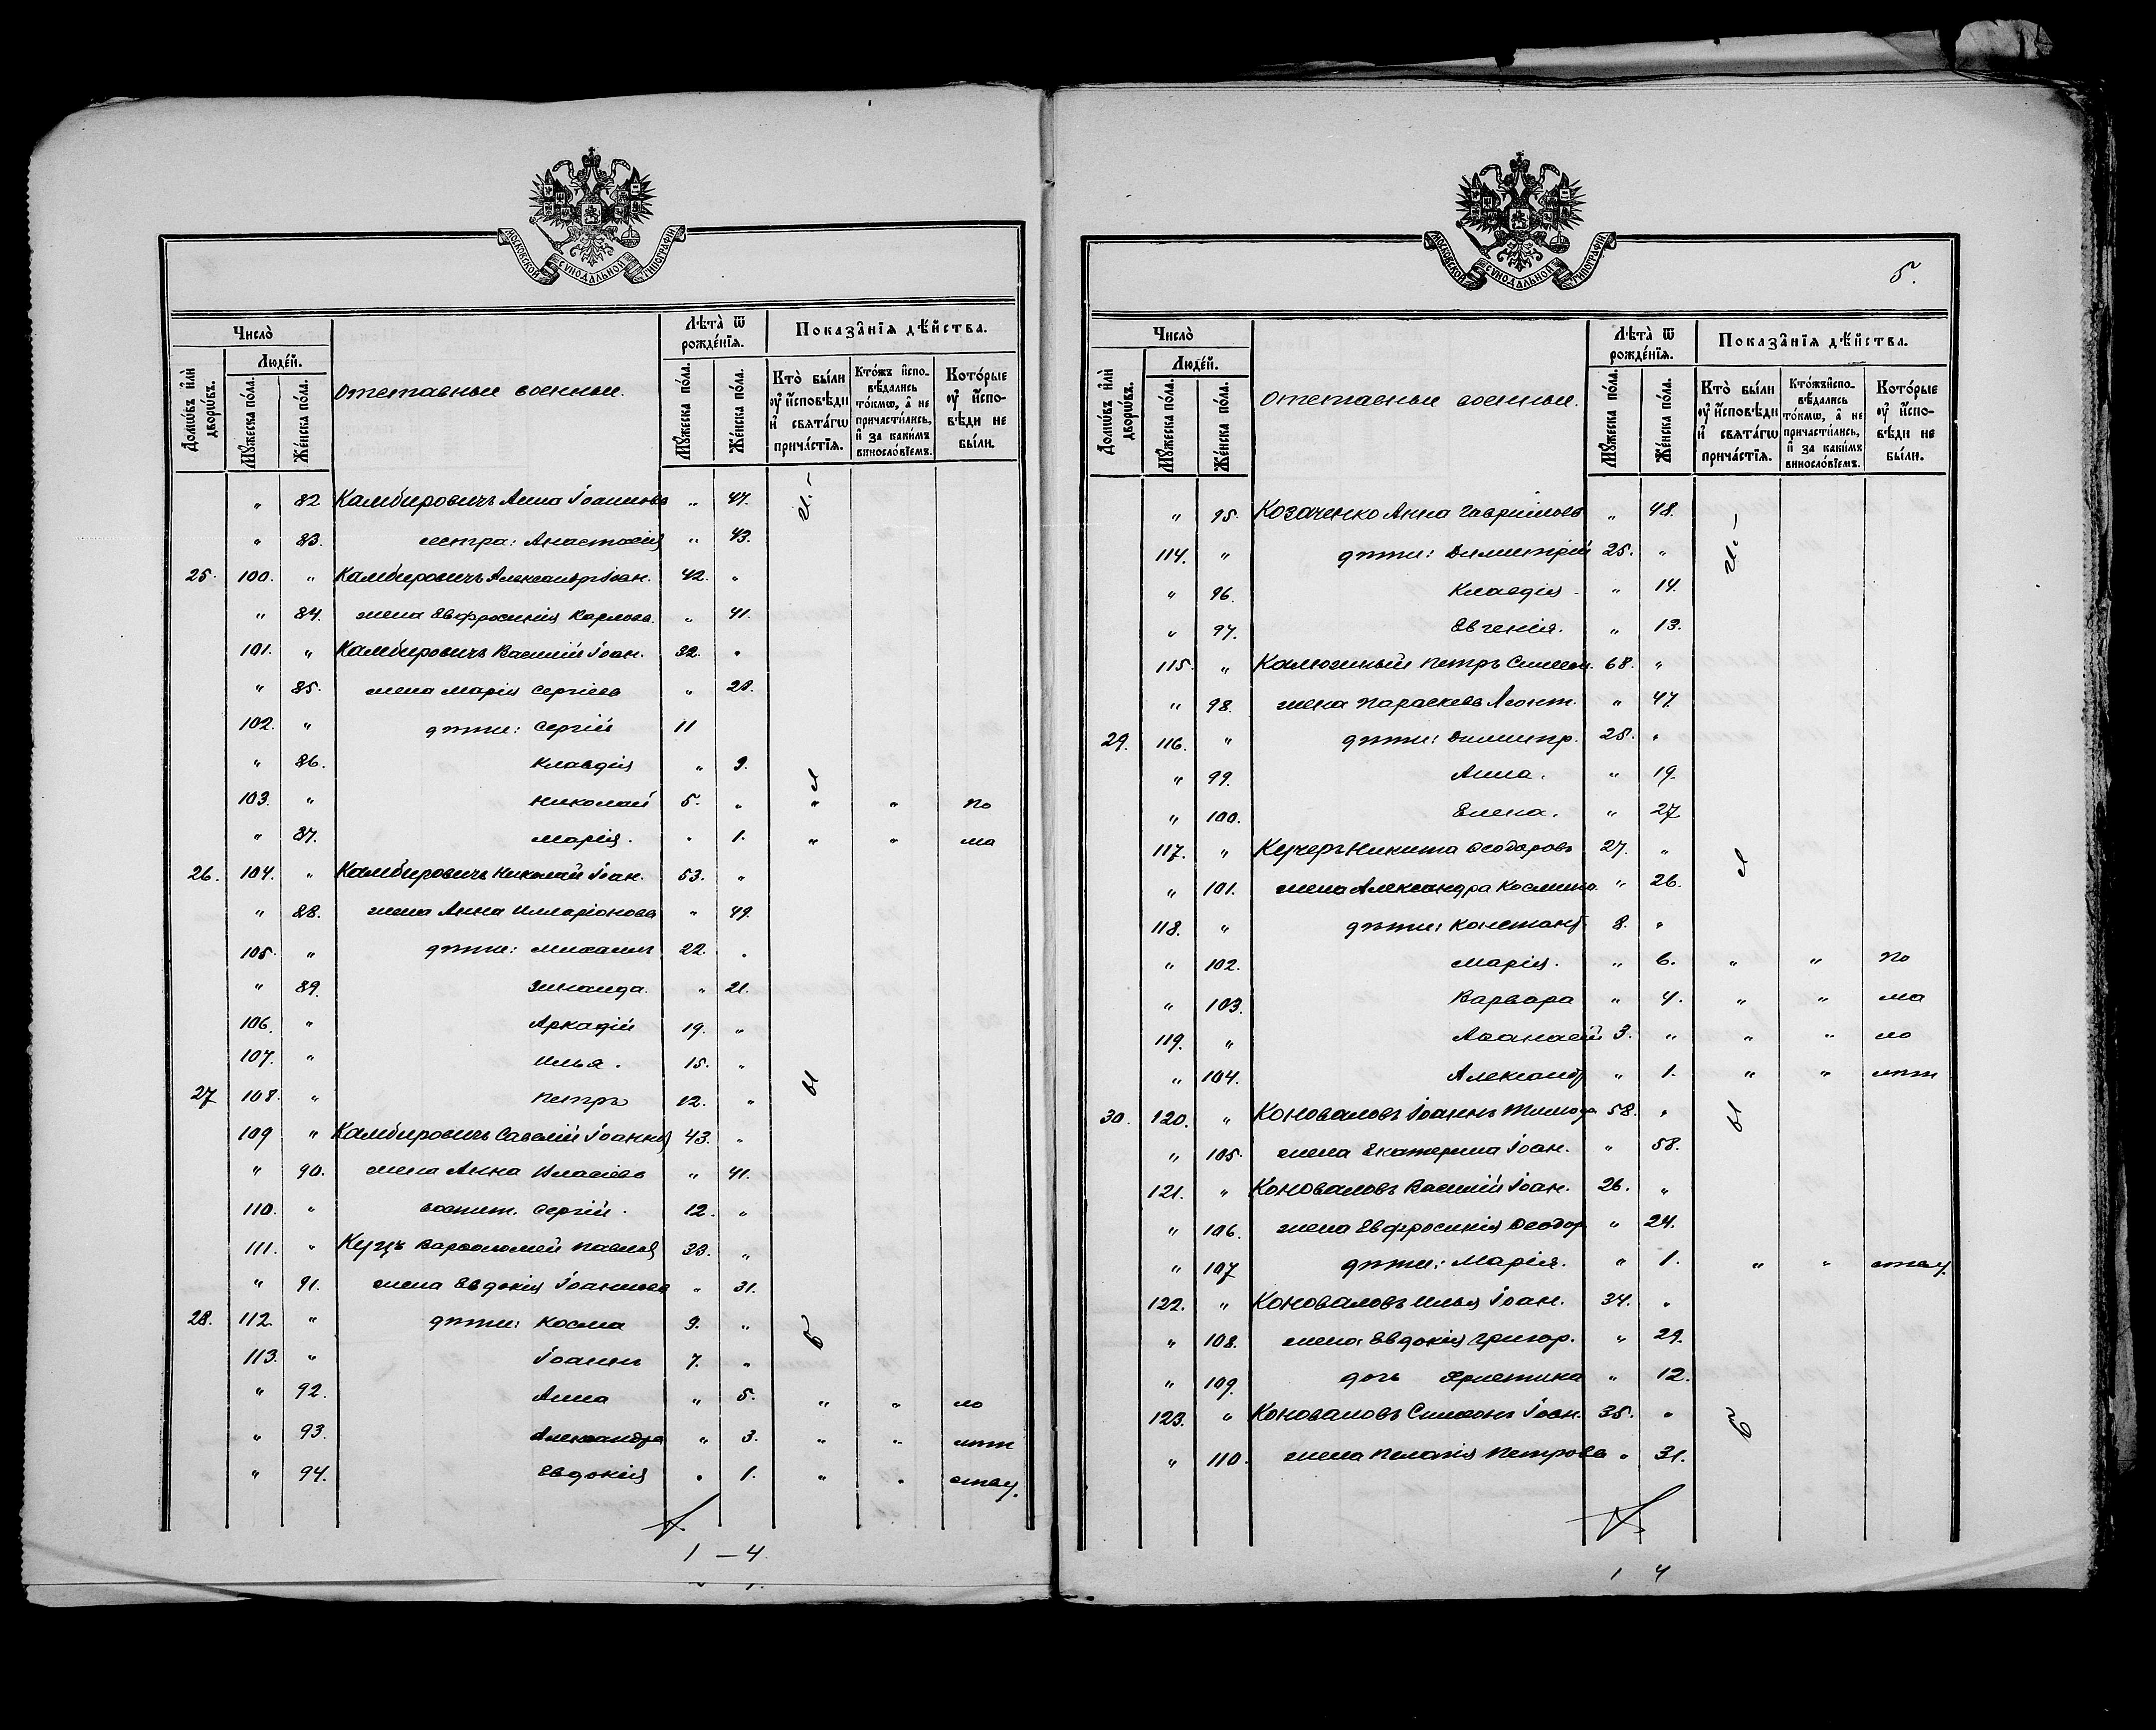 МОСКОВСКОЙ СѴНОДАЛЬНОЙ ТИПОГРАФІИ
Число̀
Людéй.
Домѡ́въ и҆лѝ дворѡ́въ.
Мꙋ́жеска по́ла.
Же́нска по́ла.
Отставные военные.
Лѣ́та ѿ рожде́нїѧ.
Мꙋ́жеска по́ла.
Же́нска по́ла.
Показа̑нїѧ дѣ́йства.
Кто̀ бы́ли ᲂу҆ и҆сповѣди и҆ свѧта́гѡ прича́стїѧ.
Кто́жъ и҆спо-вѣ́дались то́кмѡ, а҆ не причасти́лись, и҆ за каки́мъ винослов́їемъ.
Кото́рые ᲂу҆ и҆спо-вѣди не бы́ли.
" 82 Камбировичъ Анна Іоаннова " 47. И.–
" 83. сестра: Анастасія " 43.
25. 100. " Камбировичъ Александръ Іоан. 42. "
" 84. жена Евфросинія Карлова. " 41.
101. " Камбировичъ Василій Іоан. 32. "
" 85. жена Марія Сергіева " 28.
102. " дѣти: Сергій 11
" 86. Клавдія " 9.
103. " Николай 5. " " " по
" 87. Марія. " 1. " " ма
26. 104. " Камбировичъ Николай Іоан. 53. "
" 88. жена Анна Илларіонова " 49.
105. " дѣти: Михаилъ 22. "
" 89. Зинаида. " 21.
106. " Аркадій 19. "
107. " Илья. 15. "
27 108. " Петръ 12. " ы
109 " Камбировичъ Савелій Іоанновъ 43. "
" 90. жена Анна Власіева " 41.
110. " воспит. Сергій. 12. "
111. " Куцъ Варѳоломей Павловъ 33. "
" 91. жена Евдокія Іоаннова " 31.
28. 112. " дѣти: Косма 9. " в
113. " Іоаннъ 7. "
" 92. Анна " 5. " " ло
" 93. Александра " 3. " " лѣт
" 94. Евдокія " 1. " " ству.
1 – 4.
МОСКОВСКОЙ СѴНОДАЛЬНОЙ ТИПОГРАФІИ
5.
Число̀
Людéй.
Домѡ́въ и҆лѝ дворѡ́въ.
Мꙋ́жеска по́ла.
Же́нска по́ла.
Отставные военные.
Лѣ́та ѿ рожде́нїѧ.
Мꙋ́жеска по́ла.
Же́нска по́ла.
Показа̑нїѧ дѣ́йства.
Кто̀ бы́ли ᲂу҆ и҆сповѣди и҆ свѧта́гѡ прича́стїѧ.
Кто́жъ и҆спо-вѣ́дались то́кмѡ, а҆ не причасти́лись, и҆ за каки́мъ винослов́їемъ.
Кото́рые ᲂу҆ и҆спо-вѣди не бы́ли.
" 95. Козаченко Анна Гавриилова " 48. И.–
114. " дѣти: Димитрій 25. "
" 96. Клавдія " 14.
" 97. Евгенія. " 13.
115. " Калюжный Петръ Симеон. 68. "
" 98. жена Параскева Леонт. " 47
29. 116. " дѣти: Димитр. 28. "
" 99. Анна. " 19.
" 100. Елена. " 27
117. " Кучеръ Никита Ѳеодоровъ 27. "
" 101. жена Александра Космина. " 26. л
118. " дѣти: Констант. 8. "
" 102. Марія. " 6. " " по
" 103. Варвара " 4. " " ма
119. " Аѳанасій 3. " " " ло
" 104. Александр. " 1. " " лѣт
30. 120. " Коноваловъ Іоаннъ Тимоѳ. 58. " ы
" 105. жена Екатерина Іоан. " 58.
121. " Коноваловъ Василій Іоан. 26. "
" 106. жена Евфросинія Ѳеодор. " 24.
" 107 дѣти: Марія. " 1. " " ству.
122. " Коноваловъ Илья Іоан. 34. "
" 108. жена Евдокія Григор. " 29.
" 109. дочь Христина " 12.
123. " Коноваловъ Симеонъ Іоан. 35. " в
" 110. жена Пелагія Петрова " 31.
1 4